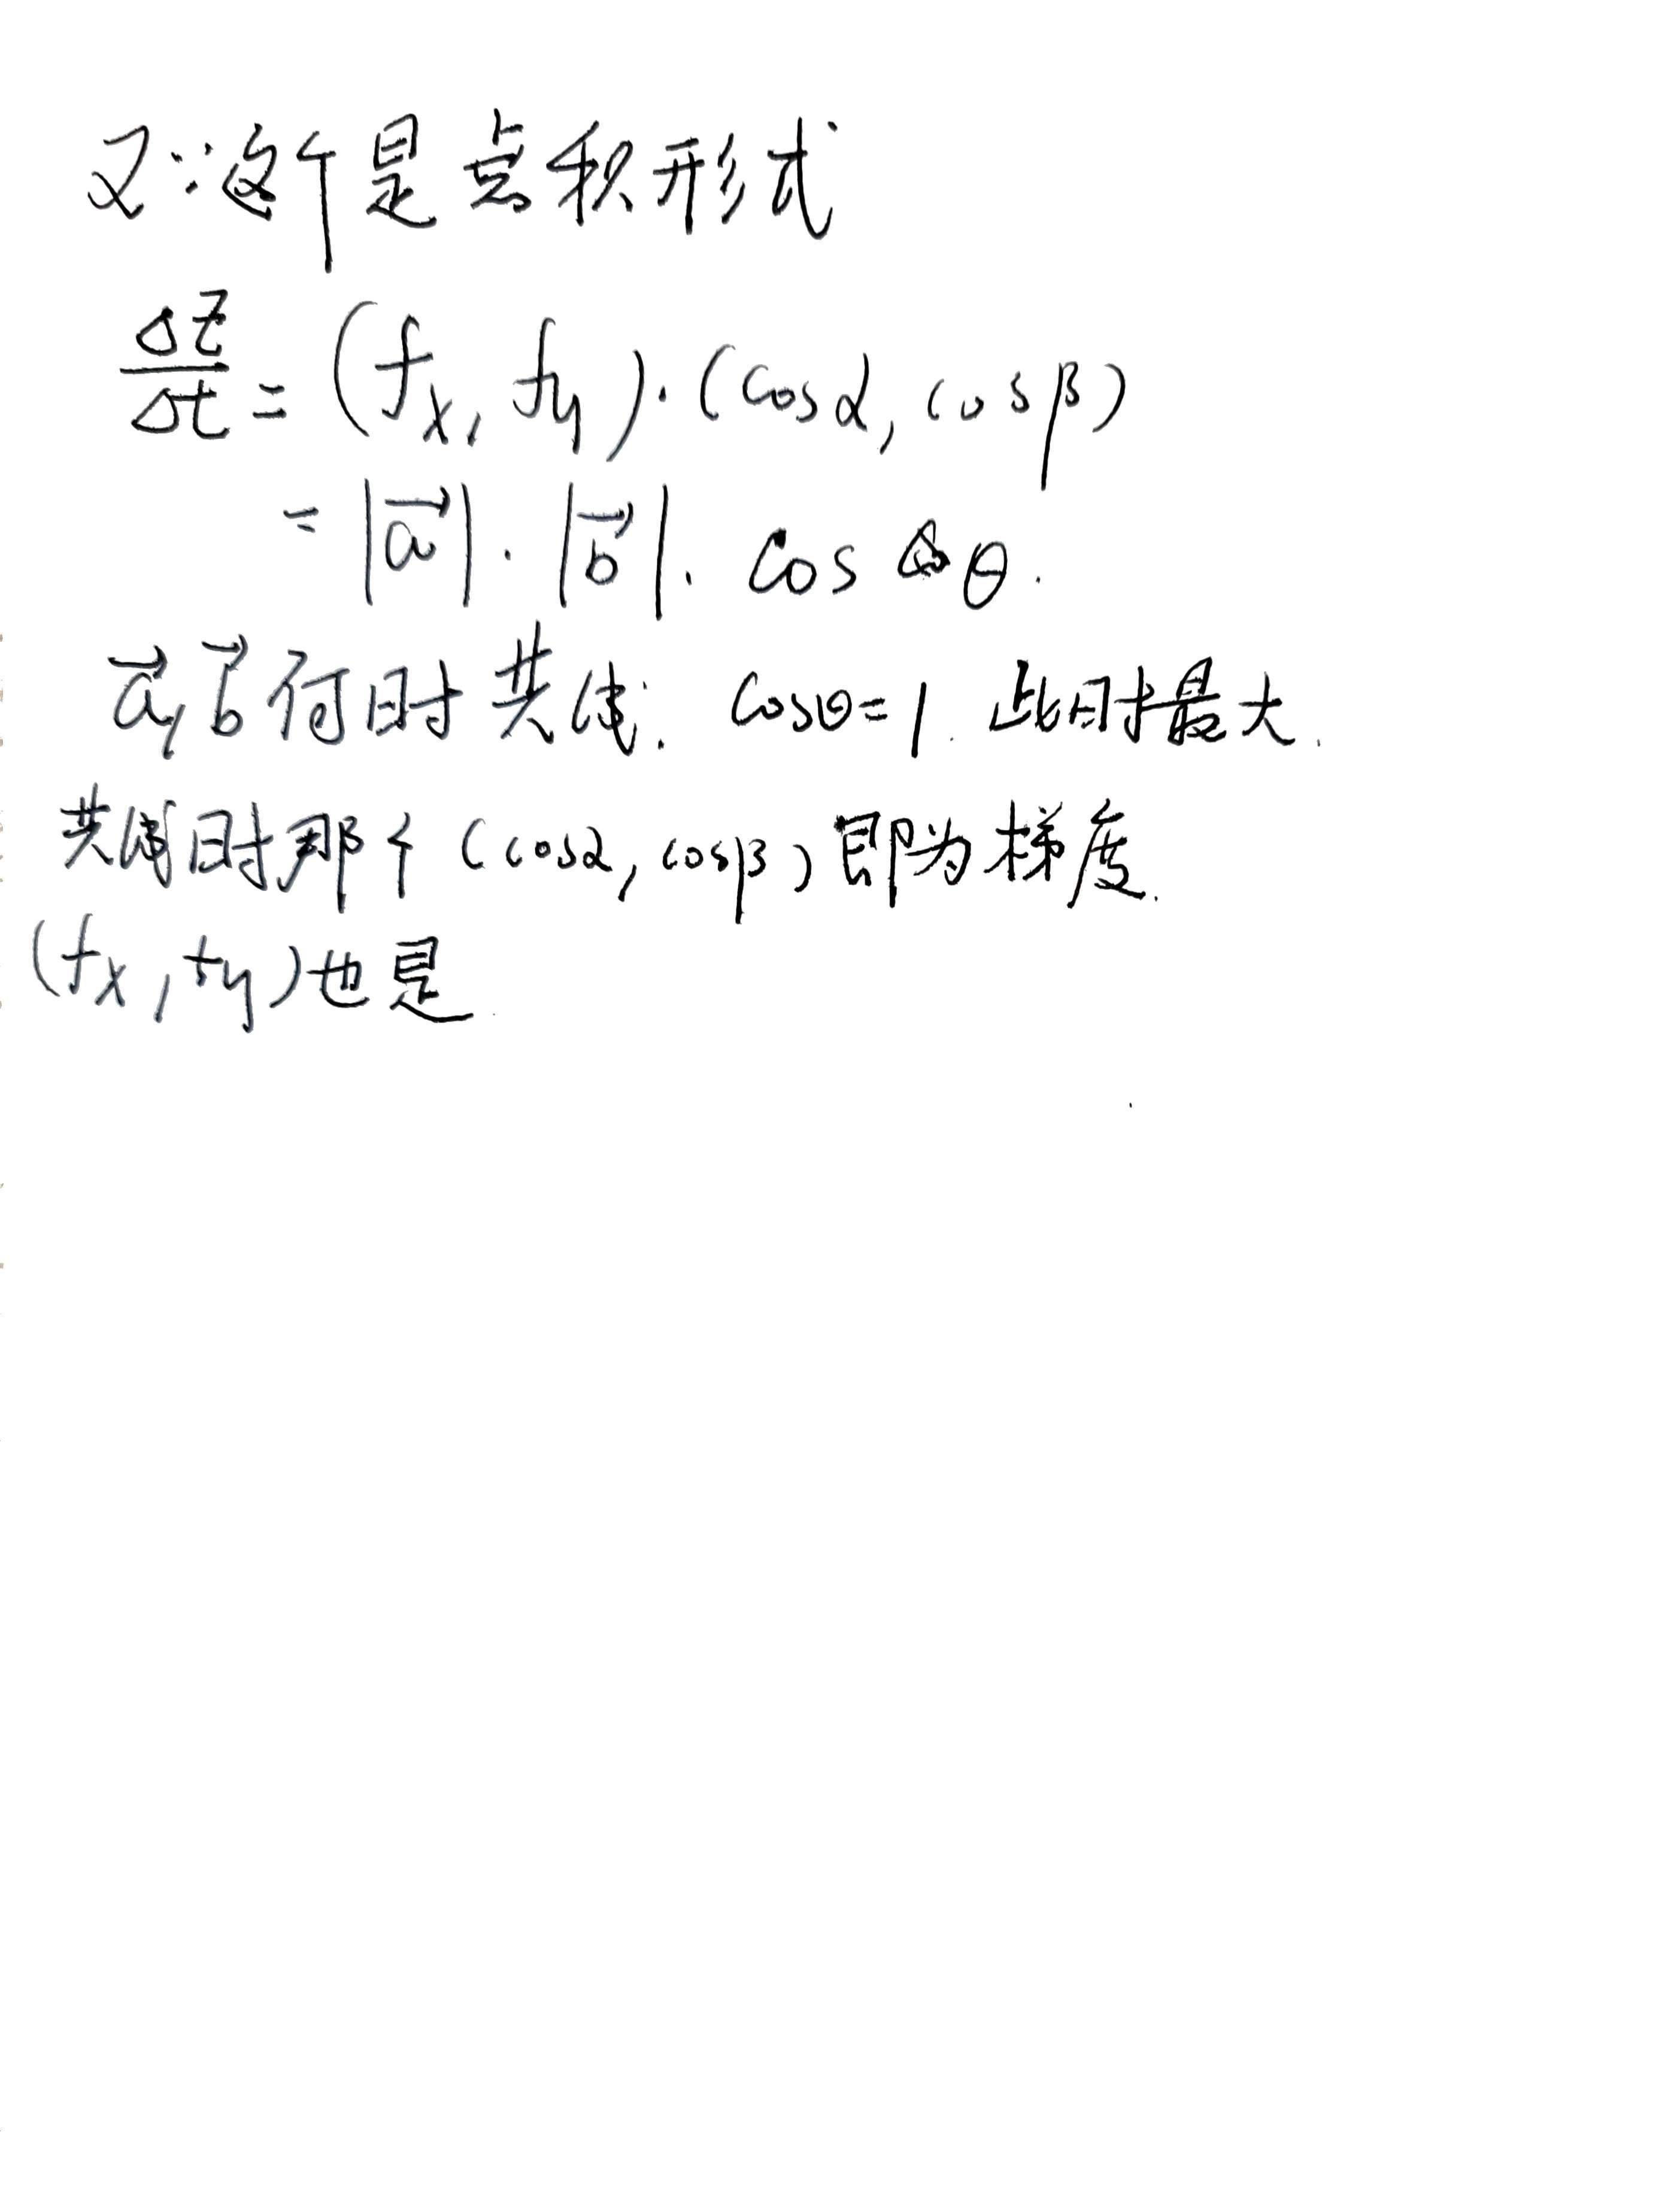 又∵这个是点积形式
Δz/Δt = (fx, fy)·(cosα, cosβ)
= |a⃗|·|b⃗|·cos θ.
a⃗, b⃗何时共线. cosθ=1. 此时最大.
共线时那个(cosα, cosβ)即为梯度.
(fx, fy)也是.